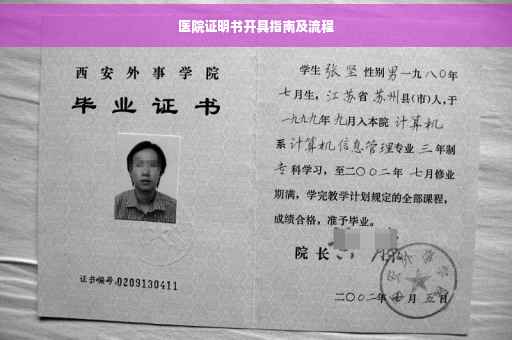 医院证明书开具指南及流程
西安外事学院
毕业证书
证书编号:0209130411
学生 张坚 性别 男 一九八〇年
七月生, 江苏省 苏州县(市)人,于
一九九九年 九月入本院 计算机
系 计算机信息管理专业 三 年制
专科学习, 至二〇〇二年 七月修业
期满, 学完教学计划规定的全部课程,
成绩合格, 准予毕业。
院长
二〇〇二年 月 五日